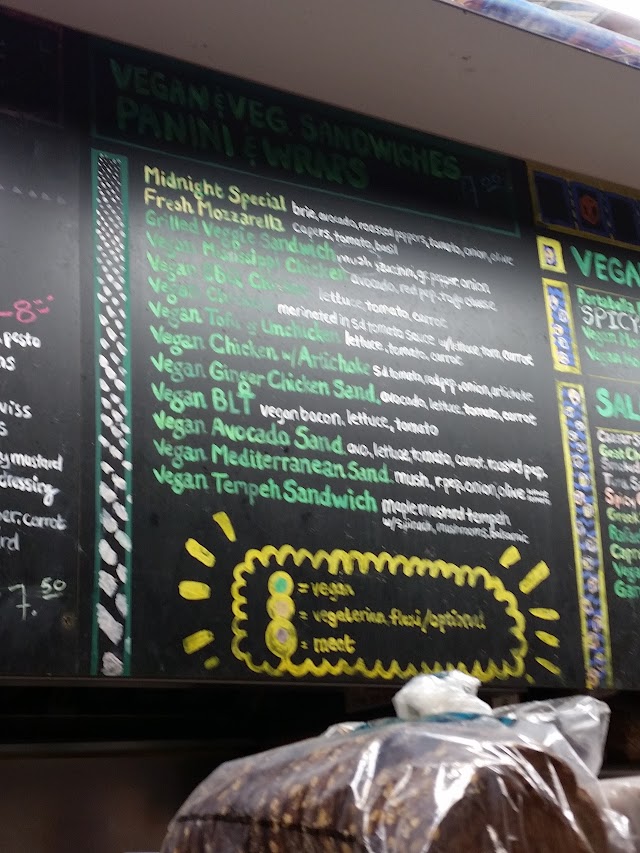 VEGAN & VEG. SANDWICHES
PANINI & WRAPS
Midnight Special brie, avocado, roasted peppers, tomato, onion, olive
Fresh Mozzarella capers, tomato, basil
Grilled Veggie Sandwich mush, zucchini, gr. pepper, onion
Vegan Mississippi Chicken avocado, red pep,
Vegan BBQ Chicken lettuce, tomato, carrot
Vegan marinated in s.d tomato sauce w/lettuce, tom, carrot
Vegan Tofu Unchicken lettuce, tomato, carrot
Vegan Chicken w/ Artichoke s.d tomato, red pep, onion, artichoke
Vegan Ginger Chicken Sand. avocado, lettuce, tomato, carrot
Vegan BLT vegan bacon, lettuce, tomato
Vegan Avocado Sand. avo, lettuce, tomato, carrot, roasted pep.
Vegan Mediterranean Sand. mush, r.pep, onion, olive
Vegan Tempeh Sandwich maple mustard tempeh
w/spinach, mushrooms, balsamic
= vegan
= vegetarian, flexi/optional
= meat
-8
pesto
mustard
dressing
carrot
7.50
VEGA
Portabella
SPICY
Vegan
Vegan
SAL